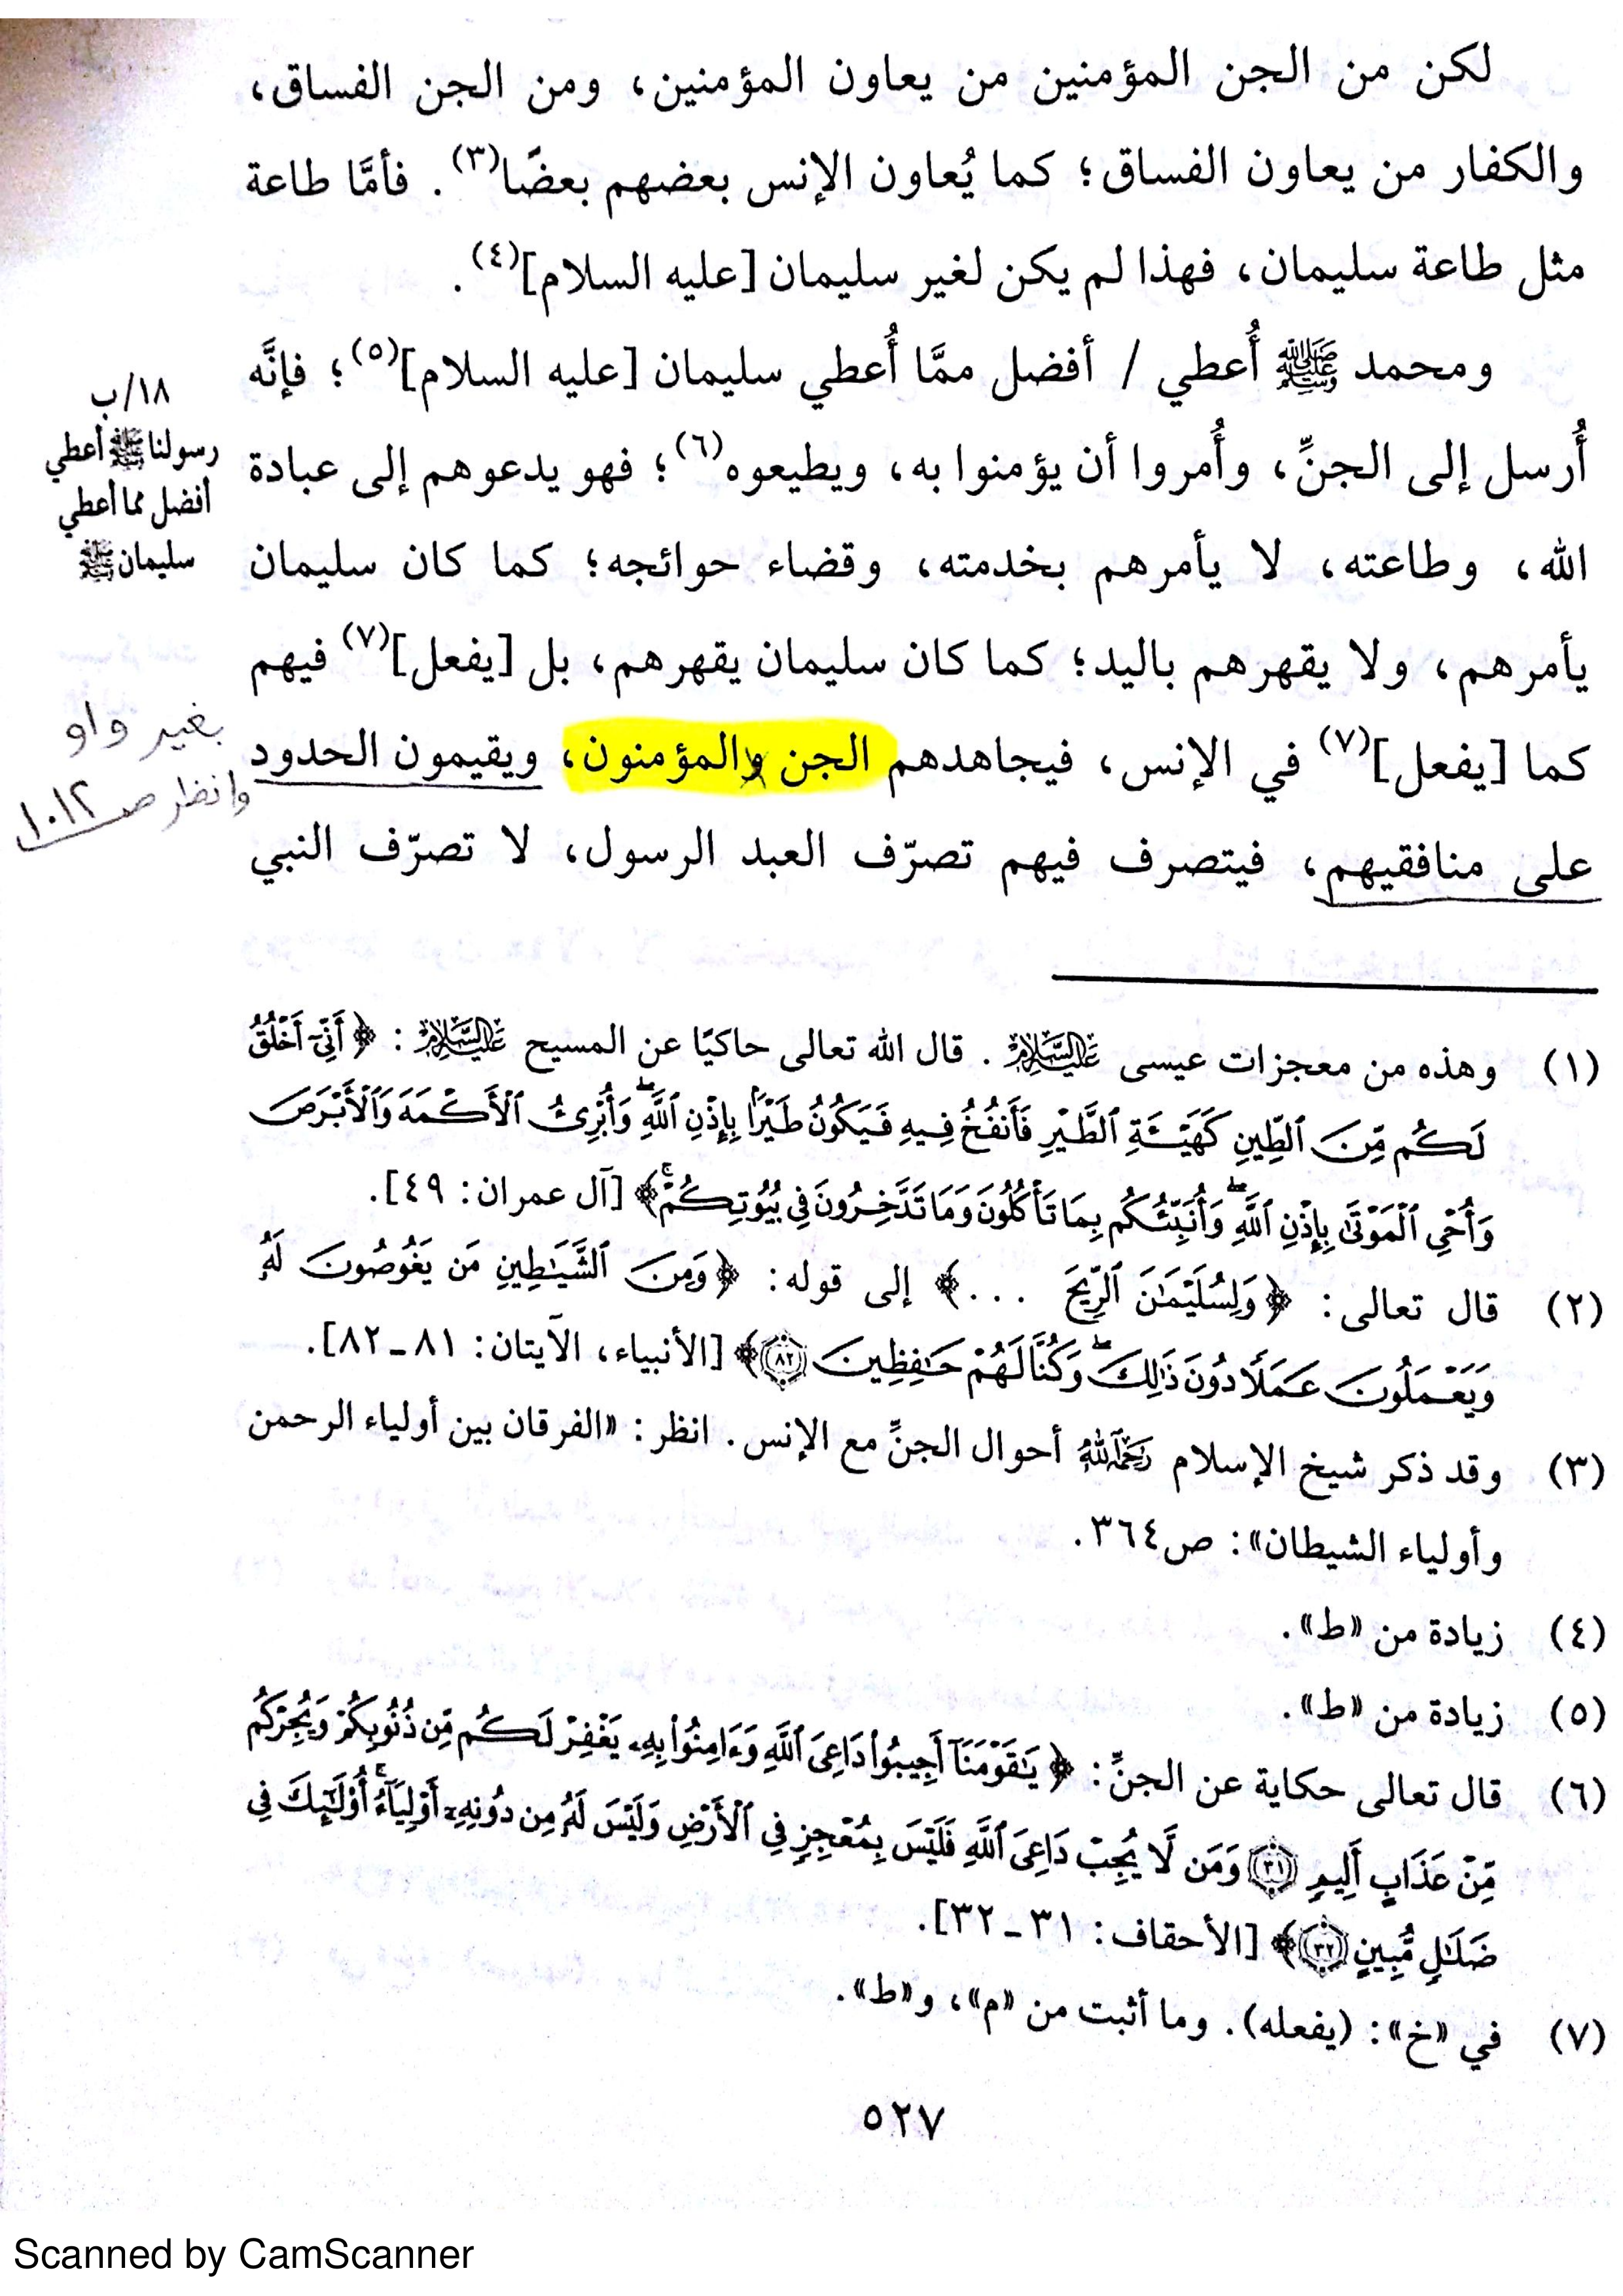 لكن من الجن المؤمنين من يعاون المؤمنين، ومن الجن الفساق،
والكفار من يعاون الفساق؛ كما يُعاون الإنس بعضهم بعضًا(٣). فأمَّا طاعة
مثل طاعة سليمان، فهذا لم يكن لغير سليمان [عليه السلام](٤).
ومحمد ﷺ أُعطي / أفضل ممَّا أُعطي سليمان [عليه السلام](٥)؛ فإنَّه
١٨/ب
رسولنا ﷺ أعطي
أفضل مما أعطي
سليمان ﷺ
أُرسل إلى الجنِّ، وأُمروا أن يؤمنوا به، ويطيعوه(٦)؛ فهو يدعوهم إلى عبادة
الله، وطاعته، لا يأمرهم بخدمته، وقضاء حوائجه؛ كما كان سليمان
يأمرهم، ولا يقهرهم باليد؛ كما كان سليمان يقهرهم، بل [يفعل](٧) فيهم
كما [يفعل](٧) في الإنس، فيجاهدهم الجن والمؤمنون، ويقيمون الحدود
بغير واو
وانظر ص ١٠١٢
على منافقيهم، فيتصرف فيهم تصرّف العبد الرسول، لا تصرّف النبي
(١) وهذه من معجزات عيسى عليه السلام. قال الله تعالى حاكيًا عن المسيح عليه السلام: ﴿أَنِّيٓ أَخْلُقُ
لَكُم مِّنَ ٱلطِّينِ كَهَيْـَٔةِ ٱلطَّيْرِ فَأَنفُخُ فِيهِ فَيَكُونُ طَيْرًۢا بِإِذْنِ ٱللَّهِۖ وَأُبْرِئُ ٱلْأَكْمَهَ وَٱلْأَبْرَصَ
وَأُحْيِ ٱلْمَوْتَىٰ بِإِذْنِ ٱللَّهِۖ وَأُنَبِّئُكُم بِمَا تَأْكُلُونَ وَمَا تَدَّخِرُونَ فِي بُيُوتِكُمْۚ﴾ [آل عمران: ٤٩].
(٢) قال تعالى: ﴿وَلِسُلَيْمَٰنَ ٱلرِّيحَ ...﴾ إلى قوله: ﴿وَمِنَ ٱلشَّيَٰطِينِ مَن يَغُوصُونَ لَهُۥ
وَيَعْمَلُونَ عَمَلًا دُونَ ذَٰلِكَۖ وَكُنَّا لَهُمْ حَٰفِظِينَ ٨٢﴾ [الأنبياء، الآيتان: ٨١ـ٨٢].
(٣) وقد ذكر شيخ الإسلام رحمه الله أحوال الجنِّ مع الإنس. انظر: «الفرقان بين أولياء الرحمن
وأولياء الشيطان»: ص٣٦٤.
(٤) زيادة من «ط».
(٥) زيادة من «ط».
(٦) قال تعالى حكاية عن الجنِّ: ﴿يَٰقَوْمَنَآ أَجِيبُوا۟ دَاعِيَ ٱللَّهِ وَءَامِنُوا۟ بِهِۦ يَغْفِرْ لَكُم مِّن ذُنُوبِكُمْ وَيُجِرْكُم
مِّنْ عَذَابٍ أَلِيمٍ ٣١ وَمَن لَّا يُجِبْ دَاعِيَ ٱللَّهِ فَلَيْسَ بِمُعْجِزٍ فِي ٱلْأَرْضِ وَلَيْسَ لَهُۥ مِن دُونِهِۦٓ أَوْلِيَآءُۚ أُو۟لَٰٓئِكَ فِي
ضَلَٰلٍ مُّبِينٍ ٣٢﴾ [الأحقاف: ٣١ـ٣٢].
(٧) في «خ»: (يفعله). وما أثبت من «م»، و«ط».
٥٢٧
Scanned by CamScanner